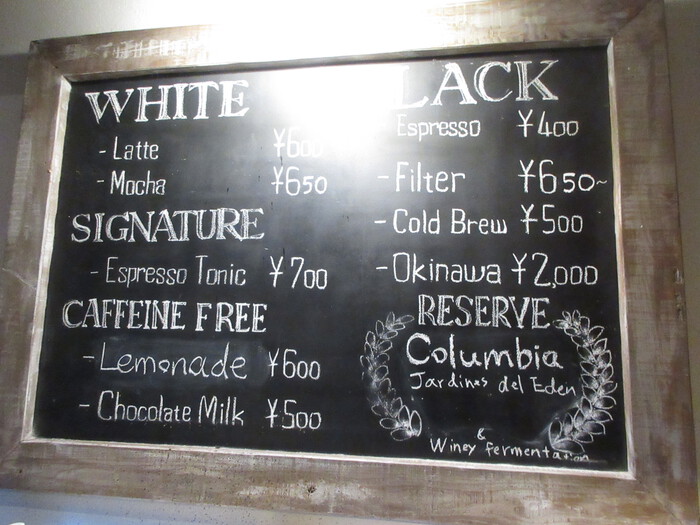 WHITE
- Latte ¥600
- Mocha ¥650
SIGNATURE
- Espresso Tonic ¥700
CAFFEINE FREE
- Lemonade ¥600
- Chocolate Milk ¥500
LACK
Espresso ¥400
- Filter ¥650~
- Cold Brew ¥500
- Okinawa ¥2,000
RESERVE
Columbia
Jardines del Eden
&
Winey fermentation